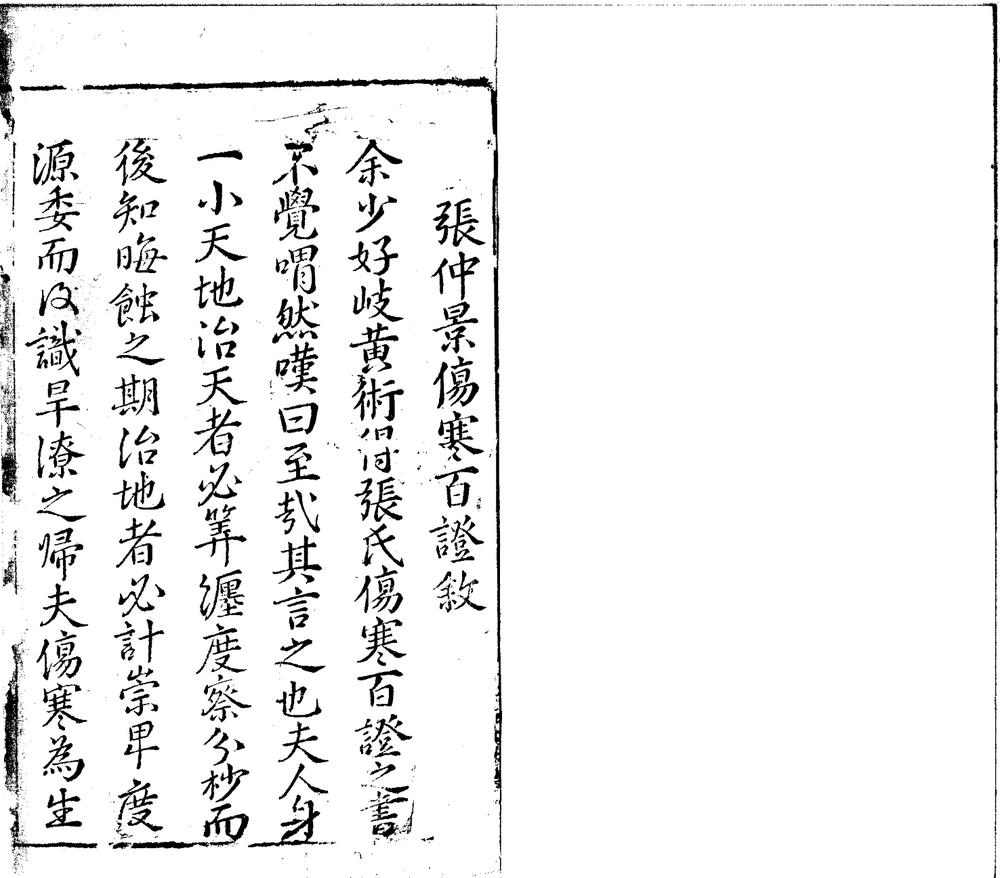 張仲景傷寒百證敘
余少好岐黄術得張氏傷寒百證之書
不覺喟然嘆曰至哉其言之也夫人身
一小天地治天者必筭躔度察分杪而
後知晦蝕之期治地者必計崇卑度
源委而後識旱潦之歸夫傷寒為生